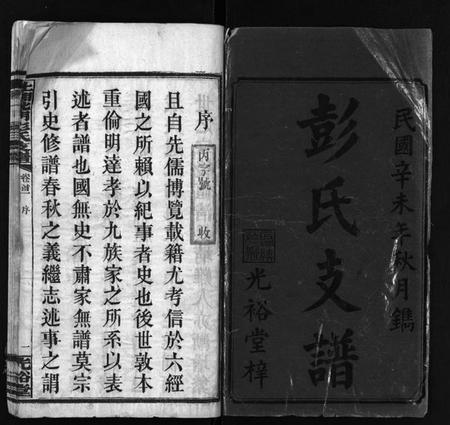 民國辛未年秋月鐫
彭氏支譜
光裕堂梓
序
丙字號 收
且自先儒博覽載籍尤考信於六經
國之所賴以紀事者史也後世敦本
重倫明達孝於九族家之所系以表
述者譜也國無史不肅家無譜莫宗
引史修譜春秋之義繼志述事之謂
彭氏支譜 卷首 序 一 光裕堂